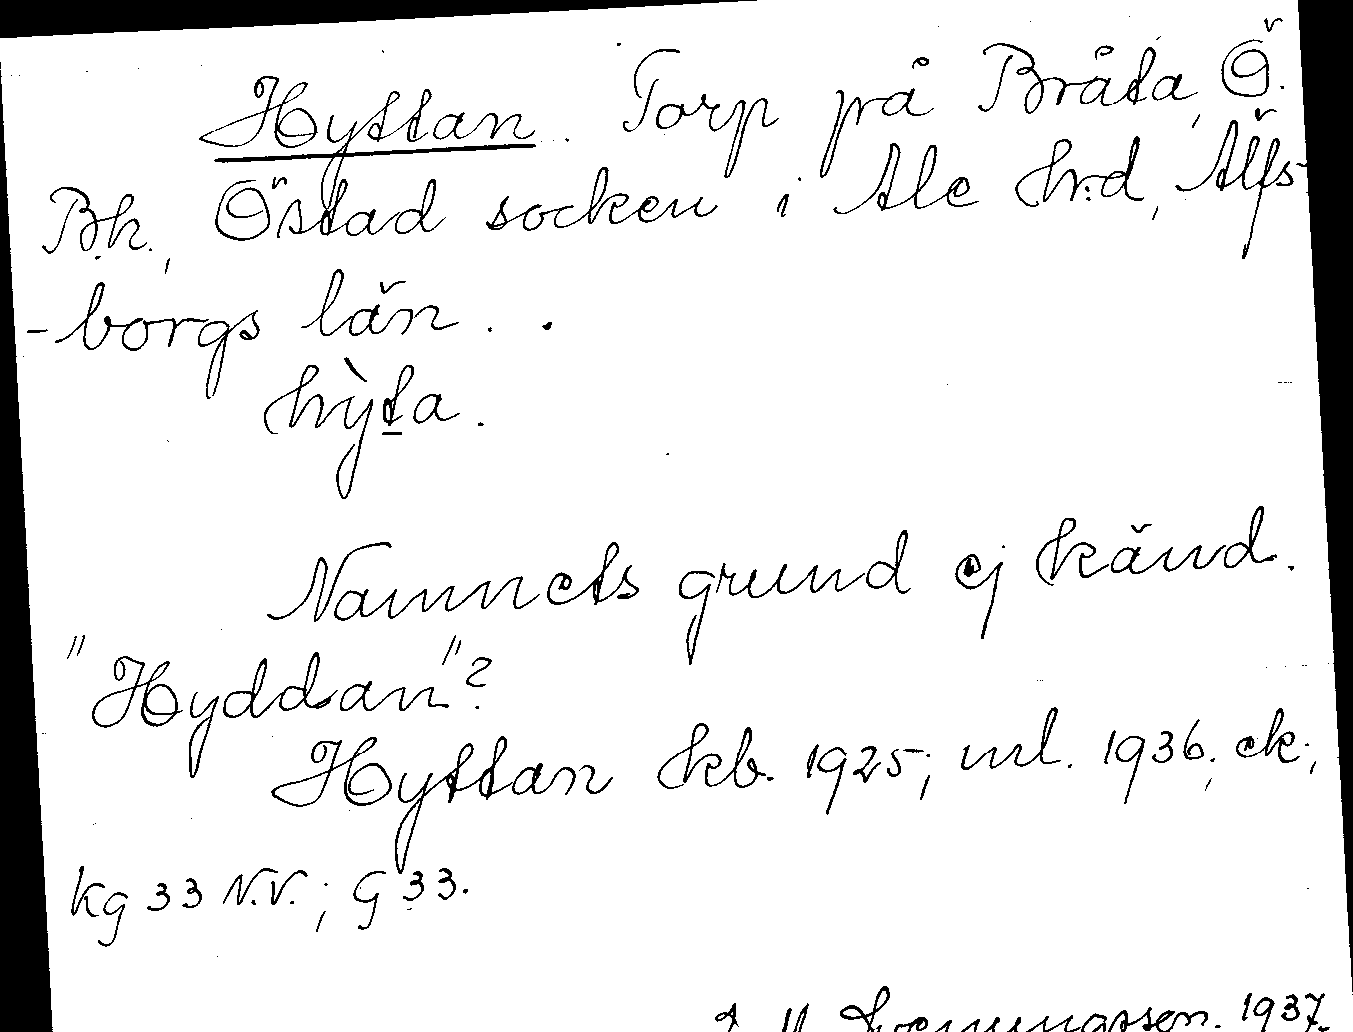 Hyttan. Torp på Bråta, Ö.
Bh., Östad socken i Ale hrd, Älfs-
-borgs län.
hỳta.
Namnets grund ej känd.
"Hyddan"?
Hyttan kb. 1925; ml. 1936; ek;
kg 33 N.V.; G 33.
1937.